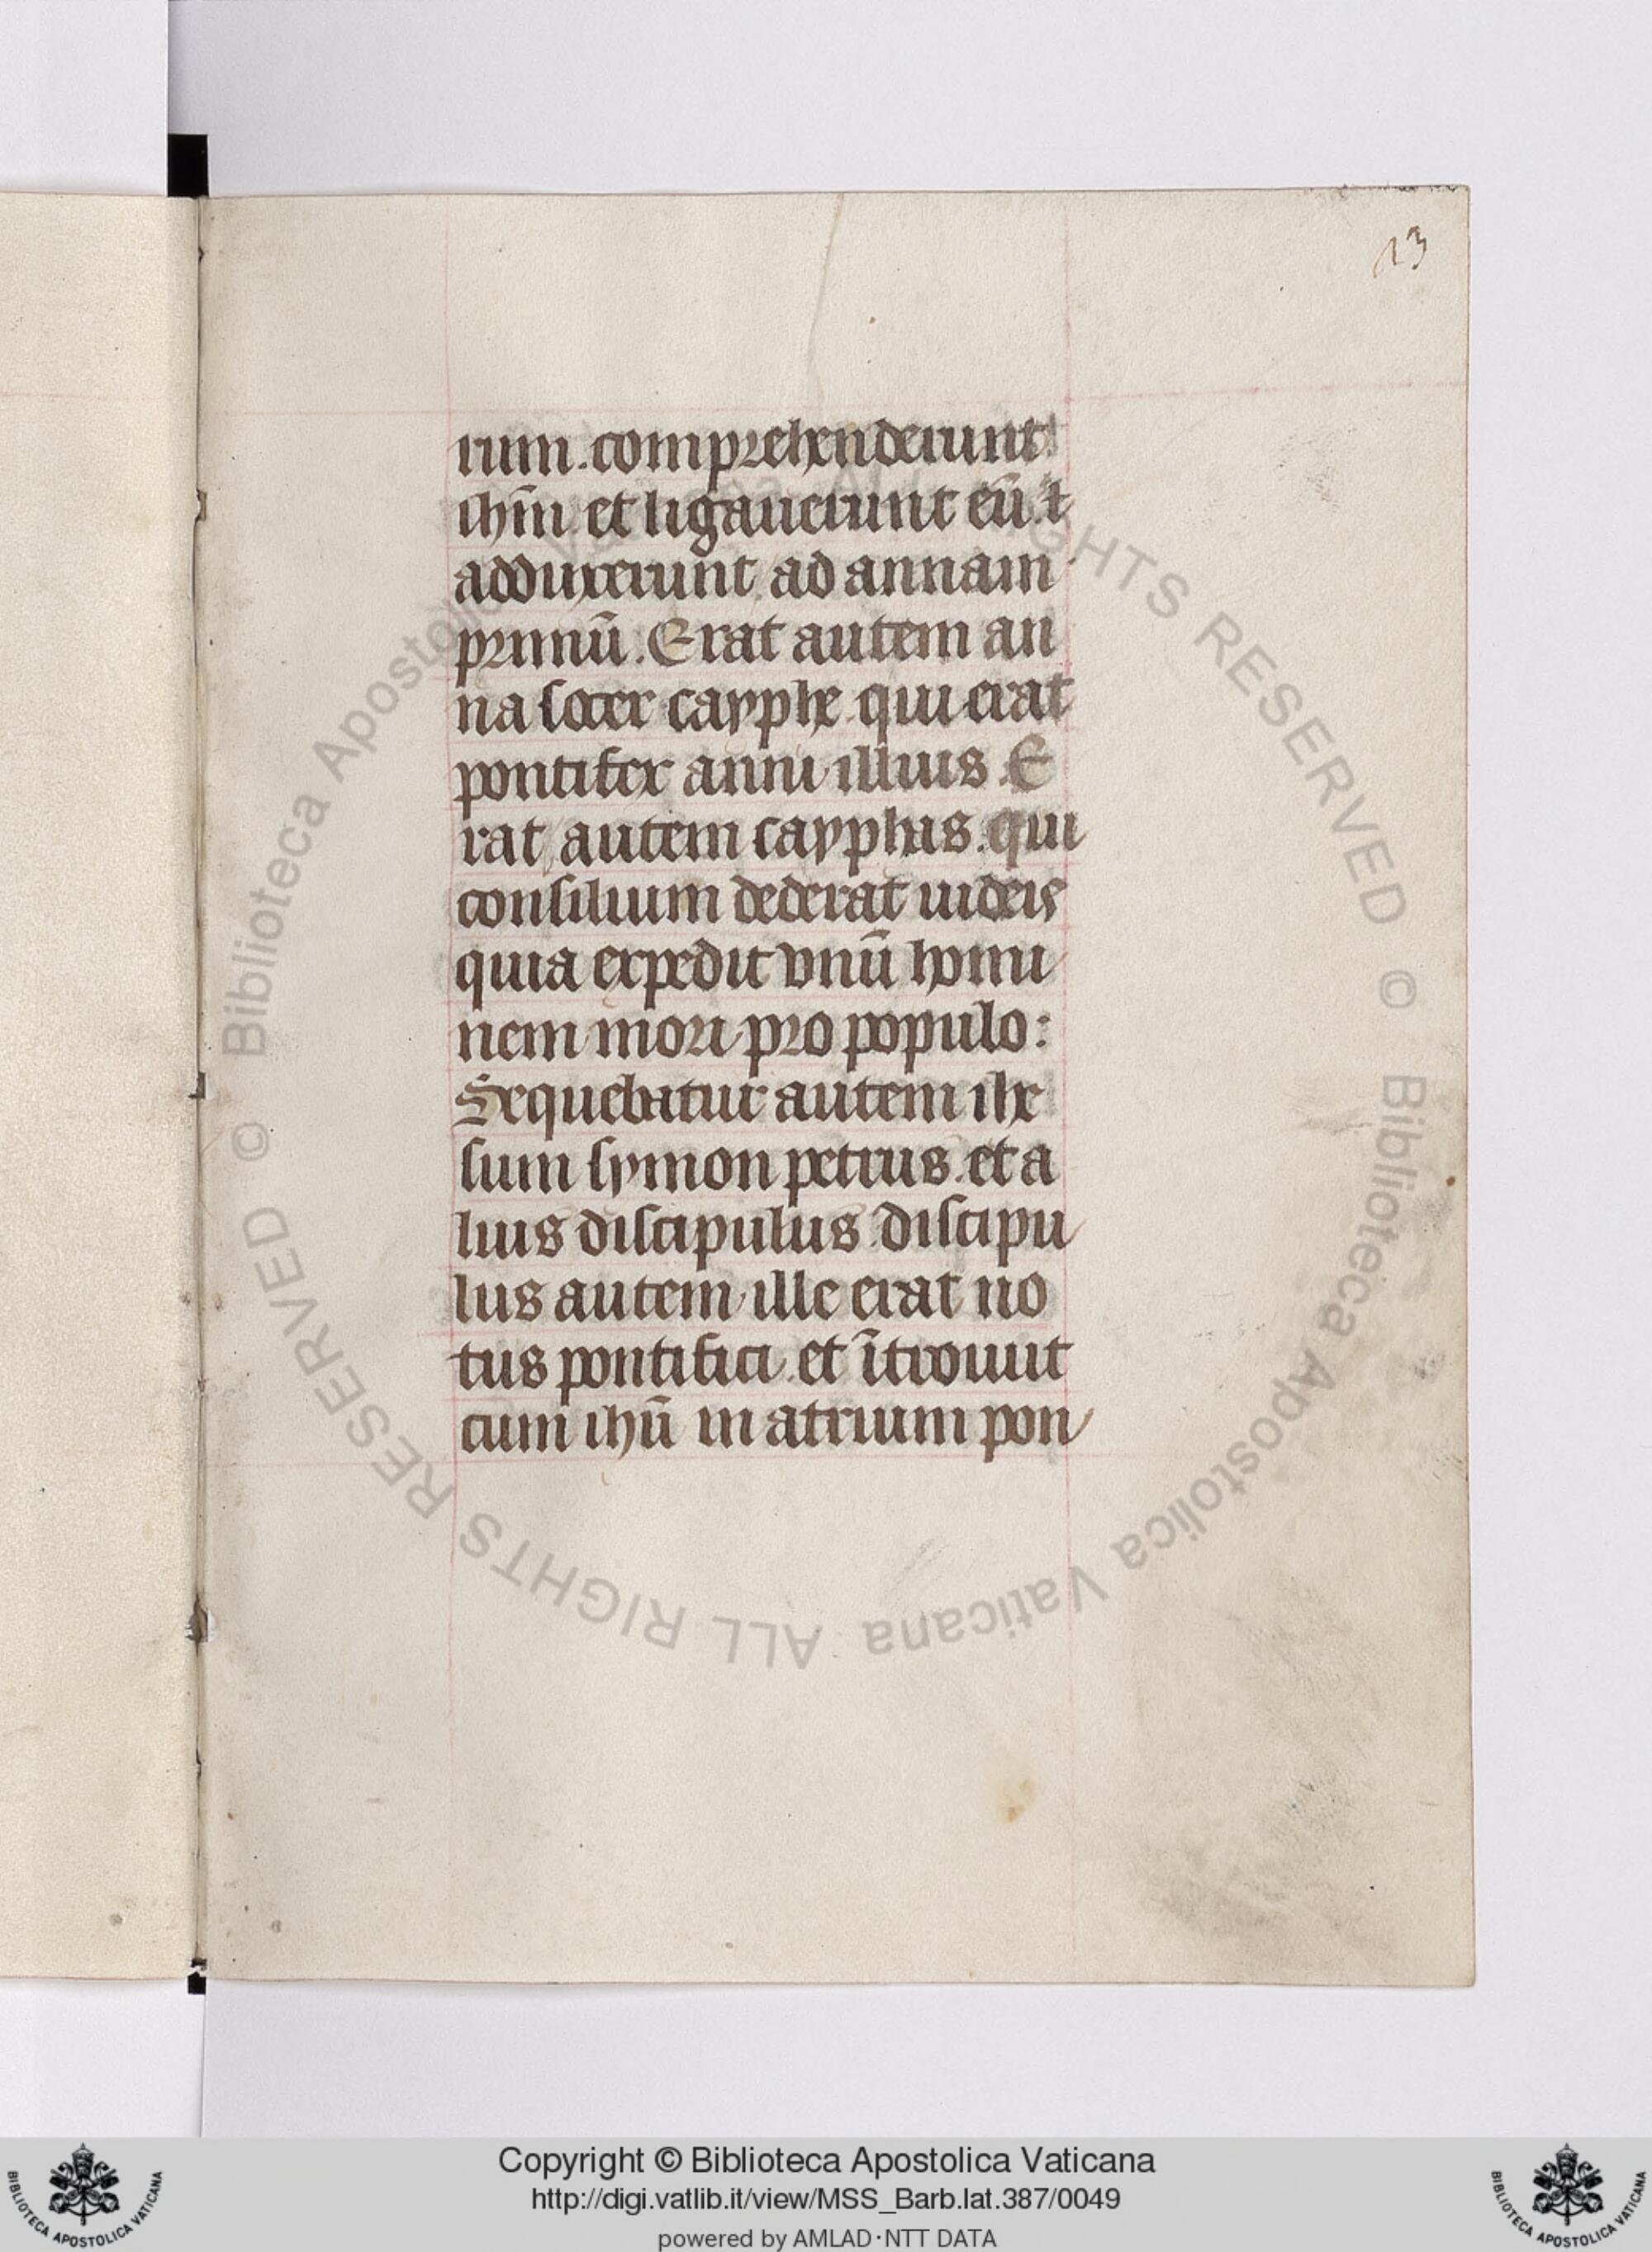 23
rum. comprehenderunt
ihm̄ et ligauerunt eū. ⁊
adduxerunt ad annam
primū. Erat autem an
na socer cayphe qui erat
pontifex anni illius. E
rat autem cayphas. qui
consilium dederat iudeis
quia expedit vnū homi
nem mori pro populo:
Sequebatur autem ihe
sum symon petrus. et a
lius discipulus. discipu
lus autem ille erat no
tus pontifici. et ītroiuit
cum ihū in atrium pon
© Biblioteca Apostolica Vaticana ALL RIGHTS RESERVED © Biblioteca Apostolica Vaticana ALL RIGHTS RESERVED
Copyright © Biblioteca Apostolica Vaticana
http://digi.vatlib.it/view/MSS_Barb.lat.387/0049
powered by AMLAD·NTT DATA
BIBLIOTECA APOSTOLICA VATICANA
BIBLIOTECA APOSTOLICA VATICANA